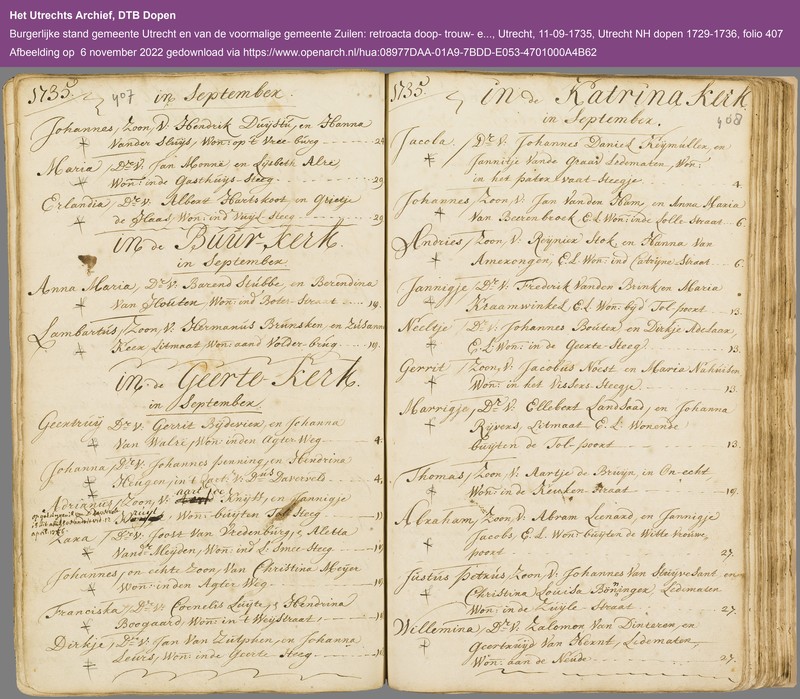 Het Utrechts Archief, DTB Dopen
Burgerlijke stand gemeente Utrecht en van de voormalige gemeente Zuilen: retroacta doop- trouw- e..., Utrecht, 11-09-1735, Utrecht NH dopen 1729-1736, folio 407
Afbeelding op 6 november 2022 gedownload via https://www.openarch.nl/hua:08977DAA-01A9-7BDD-E053-4701000A4B62
1735. 407 in September.
Johannes, Zoon, V. Hendrik Duÿstu, en Hanna
Vander Sluÿs, Won: op t Vree-burg
Maria, Dr. V. Jan Monné, en Lÿsbeth Alré,
Won: inde Gasthuÿs-Steeg 29
Erlandia, Dr. V. Albert Hartskoot, en Grietje
de Haas, Won: ind Vuÿl-Steeg 29
in de Buur-kerk.
in September
Anna Maria, Dr. V. Barend Stubbe, en Berendina
Van Houten, Won: ind Boter-Straat 19.
Lambartus, Zoon, V. Hermanus Brunsken, en
Keer, Litmaat, Won: aand Volder-brug 19.
in de Geerte-kerk.
in September
Geertruÿ Dr. V. Gerrit Bÿdevier, en Johanna
Van Walre, Won: inden Agter Weg 4.
Johanna, Dr. V. Johannes Penning, en Hendrina
Heugen, in t Cort V. Daversvels 4.
Adrianus, Zoon, V. Knÿff, en Jannigje
Won: buÿten Tol Steeg 11
Zara Dr. V. Joost Van Vredenburg, Aletta
Vand Meÿden, Won: ind L. Smee-Steeg
Johannes, on echte Zoon, Van Christina Meÿer
Won: inden Agter Weg
Franciska, Dr. V. Cornelis Luÿte, Hendrina
Boogaard, Won: in t Weÿstraat
Dirkje, Dr. V. Jan Van Zutphen, en Johanna
Leurs, Won: inde Geerte Steeg
1735. in de Katrina Kerk
in September. 408
Jacoba, Dr. V. Johannes Daniel Keÿmuller, en
Jannitje Vande Graaf Ledematen, Won:
in het pater vaat-Steegje 4
Johannes, Zoon, V. Jan Vanden Ham, en Anna Maria
Van Beerenbroek E.L. Won: inde Lolle-Straat 6.
Andries, Zoon, V. Reÿnier Stok, en Hanna Van
Amerongen, E.L. Won: ind Catrÿne-Straat 6.
Jannigje Dr. V. Frederik Vanden Brink, en Maria
Kraamwinkel E.L. Won: bÿd Tol-poort 13.
Neeltje, Dr. V. Johannes Bouter, en Dirkje Adelaar,
E.L. Won: in de Geerte Steeg 13.
Gerrit, Zoon, V. Jacobus Noest, en Maria
Won: in het Vissers-Steegje 13.
Marrigje, Dr. V. Ellebert Landsaad, en Johanna
Rÿvers, Litmaat E.L. Wonende
buÿten de Tol-poort 13.
Thomas, Zoon V. Aartje de Bruÿn, in On-echt
Won: inde Keuken-straat 19.
Abraham, Zoon, V. Abram Lienard, en Jannigje
Jacobs, E.L. Won: buÿten de Witte vrouwe
poort 27.
Justus Petrus, Zoon, V. Johannes Van Stuÿvesant en
Christina Louisa Böninger Ledematen
Won: in de Zuÿle-Straat 27.
Willemina, Dr. V. Zalomon Van Dinteren, en
Geertruÿd Van Hernt, Ledematen,
Won: aan de Neude 27.